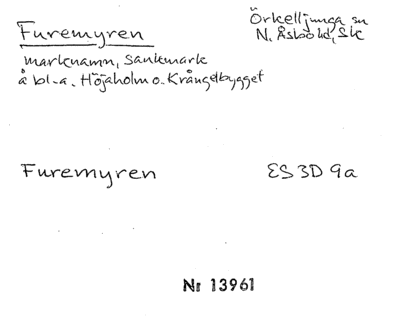 Furemyren
Örkelljunga sn
N. Åsbo hd, Sk
marknamn, sankmark
å bl.a. Höjaholm o. Krångelbygget
Furemyren ES 3D 9a
Nr 13961